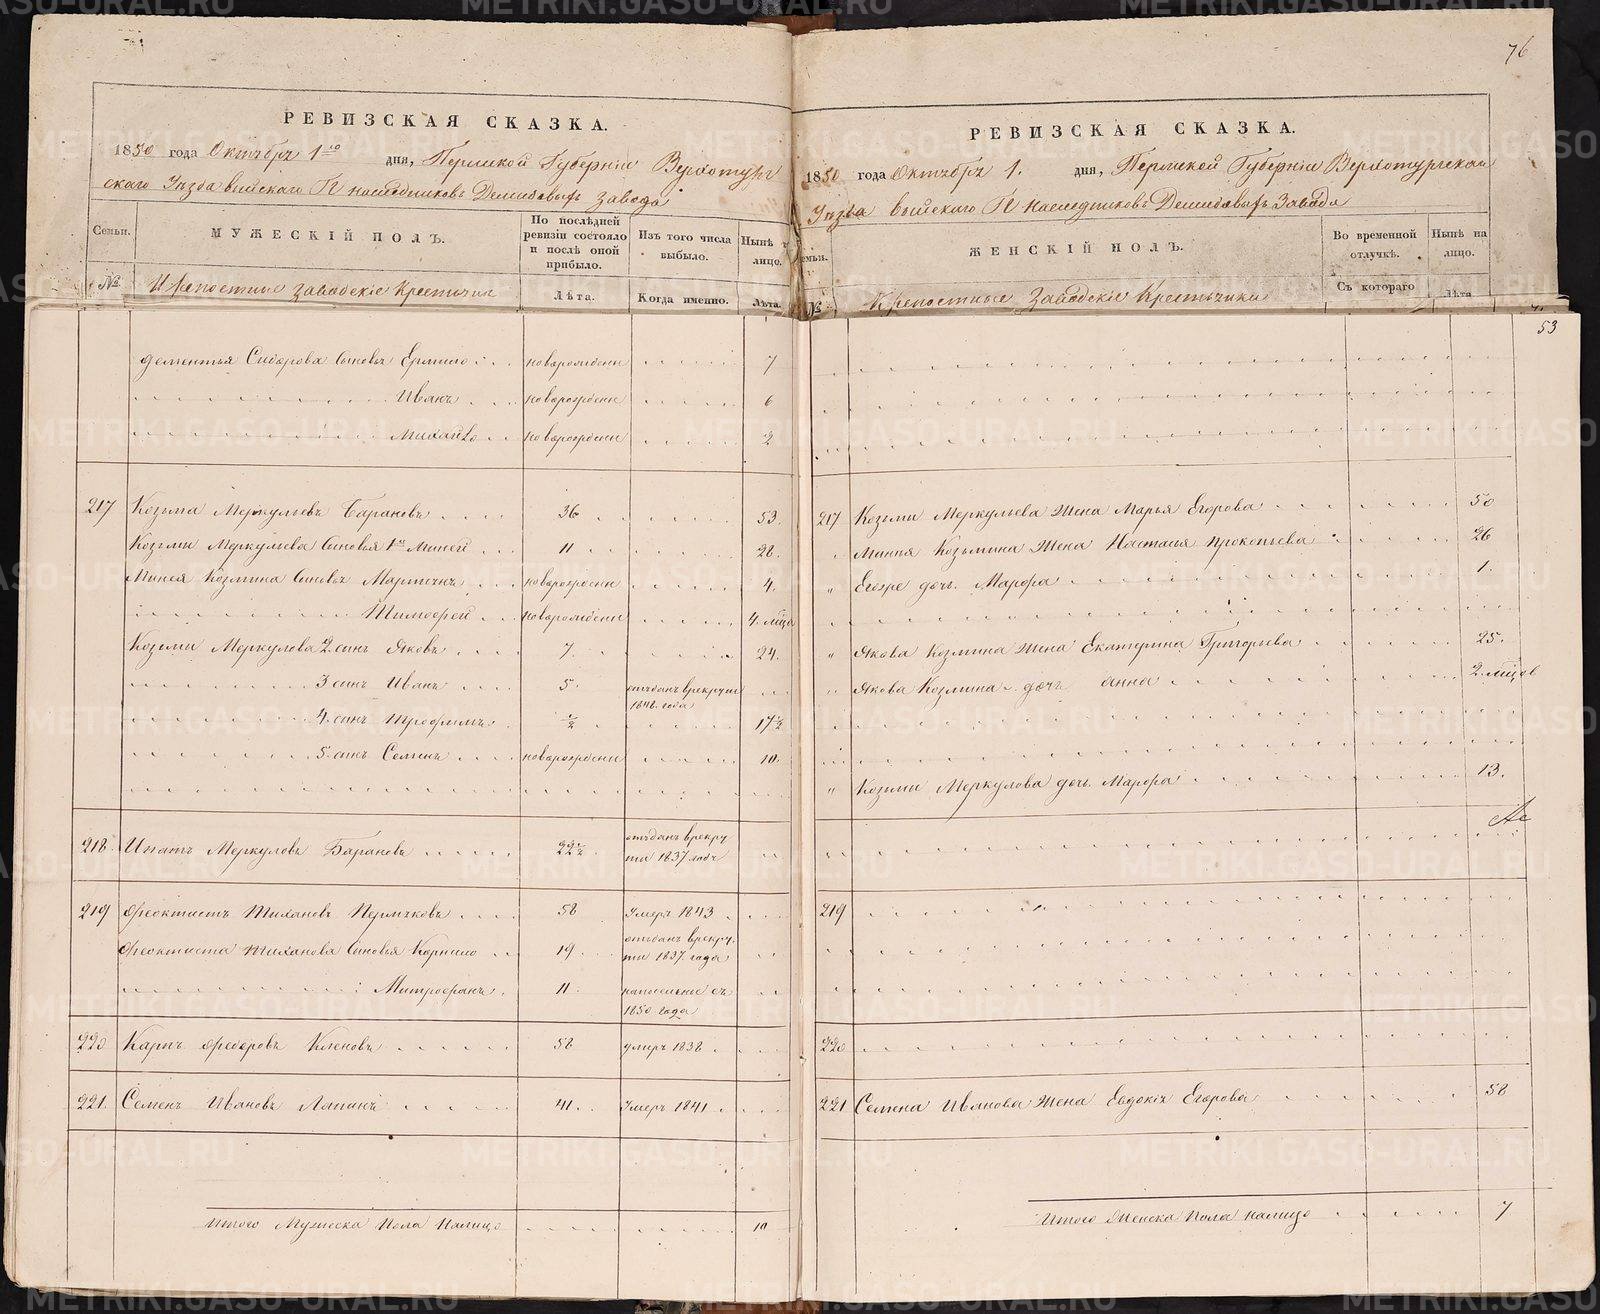 76
РЕВИЗСКАЯ СКАЗКА.
1850 года Октября 1го дня, Пермской Губернiи Верхотур
скаго Уезда Выйскаго Г наследниковъ Демидовыхъ завода
Семьи.
МУЖЕСКІЙ ПОЛЪ.
По послѣдней ревизіи состояло и послѣ оной прибыло.
Изъ того числа выбыло.
Нынѣ лицо.
№
Крепостные заводскiе Крестьяне
Лѣта.
Когда именно.
Лѣта.
Дементья Сидорова Сыновья Ермило новорожденн 7
Иванъ новорожденн 6
Михайло новорожденн 2
217 Козьма Меркульевъ Барановъ 36 53.
Козьмы Меркульева Сыновья 1й Миней 11 28.
Минея Козмина Сыновья Мартинъ новорожденн 4.
Тимофей новорожденн 4. мѣся
Козьмы Меркулова 2. сынъ Яковъ 7. 24.
3 сынъ Иванъ 5 отъданъ врекруты
1848. года
4. сынъ Трофимъ ½ 17½
5. сынъ Семенъ новорожденн 10.
218. Игнатъ Меркуловъ Барановъ 22½ отъданъ врекру
ты 1837 годъ
219 Феоктистъ Тихановъ Пермяковъ 58 Умеръ 1843
Феоктиста Тиханова Сыновья Корнило 19 отъданъ врекру
ты 1837. года
Митрофанъ 11 съ
1850 года
220 Карпъ Федоровъ Кленовъ 58 умеръ 1838
221. Семенъ Ивановъ Лапинъ 41. Умеръ 1841
Итого Мужеска Пола Налицо 10
РЕВИЗСКАЯ СКАЗКА.
1850 года Октября 1. дня, Пермской Губернiи Верхотурскаго
Уезда Выйскаго Г наследниковъ Демидовыхъ Завода
емьи.
ЖЕНСКІЙ ПОЛЪ.
Во временной отлучкѣ.
Нынѣ на лицо.
№
Крепостные Заводскiе Крестьянки
Съ котораго
Лѣта
53
217 Козьмы Меркульева Жена Марья Егорова 50
" Минея Козьмина Жена Настасья Прокопьева 26
" Егоже дочь Марфа 1.
" Якова Козмина Жена Екатерина Григорьева 25.
" Якова Козмина дочь анна 2. мѣсяцов
" Козьмы Меркулова дочь Марфа 13.
219
220
221 Семена Иванова Жена Евдокiя Егорова 58
Итого Женска Пола налицо 7
METRIKI.GASO-URAL.RU